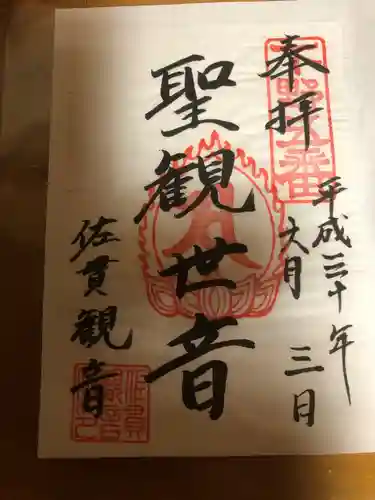 奉拝
平成三十年
六月三日
聖観世音
佐貫観音